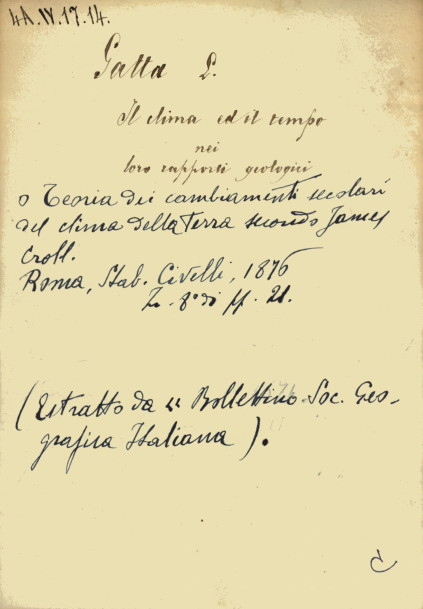 4A.IV.17.14.
Gatta L.
Il clima ed il tempo
nei
loro rapporti geologici
o Teoria dei cambiamenti secolari
del clima della terra secondo James
Croll.
Roma, Stab. Civelli, 1876
In 8° di pp. 21.
(Estratto da "Bollettino Soc. Geo-
grafica Italiana).